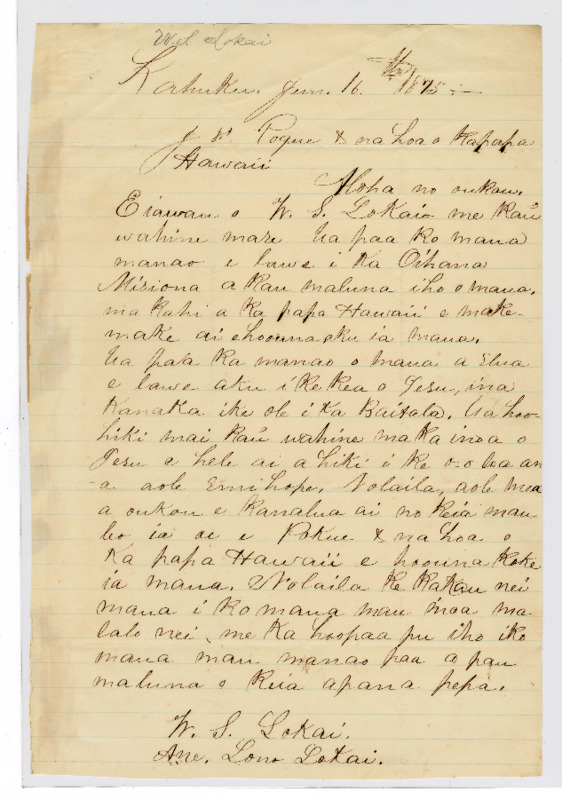 W. S. Lokai
Kahuku. Jun. 16. 1875 :—
J. F. Pogue & na hoa o Kapapa
Hawaii
Aloha no oukou.
Eiawau o W. S. Lokai me kaū
wahine mare Ua paa ko maua
manao e lawe i ka Oihana
Misiona a kau maluna iho o maua,
ma kahi a ka papa Hawaii e make-
make ai e hoounaaku ia maua.
Ua paa ka manao o maua a Elua
e lawe aku i ke kea o Iesu, i na
kanaka ike ole i ka Baibala. Ua hoo-
hiki mai kaū wahine ma ka inoa o
Iesu e hele ai a hiki i ke o-o loa an
a aole Emihope, Nolaila, aole mea
a oukou e kanalua ai no keia mau
leo ia oe e Pokue & na hoa o
ka papa Hawaii e hoouna koke
ia maua. Nolaila ke kakau nei
maua i ko maua mau inoa ma
lalo nei, me ka hoopaa pu iho i ko
maua mau manao paa a pau
maluna o keia apana pepa.
W. S. Lokai.
Ane. Lono Lokai.